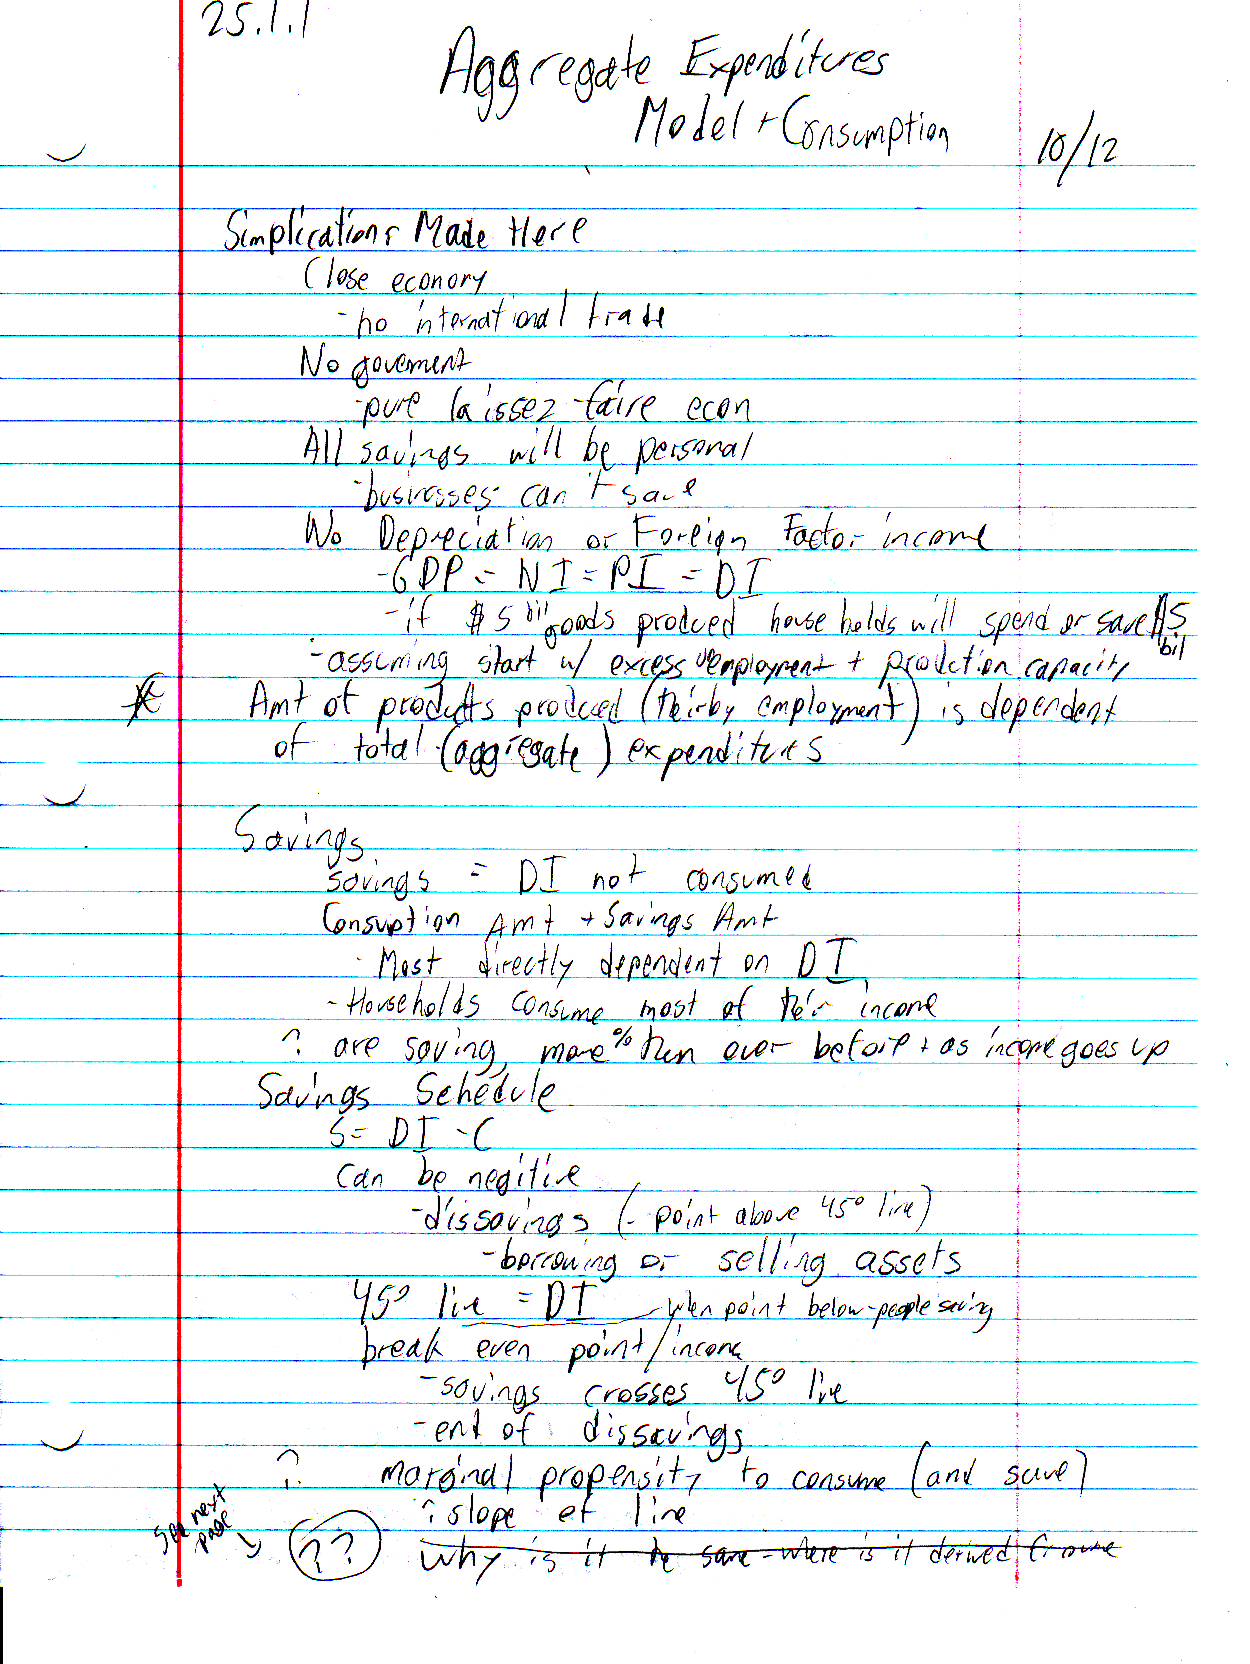 25.1.1
Aggregate Expenditures
Model + Consumption
10/12
Simplications Made Here
Close economy
- no international trade
No goverment
- pure laissez-faire econ
All savings will be personal
- businesses can't save
No Depreciation or Foreign Factor income
- GDP = NI = PI = DI
- if $5 bil goods produced households will spend or save $5 bil
- assuming start w/ excess employment + prodction capacity
Amt of products produced (thirby employment) is dependent
of total (aggregate) expenditures
Savings
savings = DI not consumed
Consuption Amt + Savings Amt
- Most directly dependent on DI
- Households consume most of their income
? are saving more % then ever before + as income goes up
Savings Schedule
S = DI - C
can be negitive
- dissavings (- point above 45° line)
- borrowing or selling assets
45° line = DI - when point below - people saving
break even point/income
- savings crosses 45° line
- end of dissavings
? marginal propensity to consume (and save)
? slope of line
See next page
?? why is it the same - where is it derived from